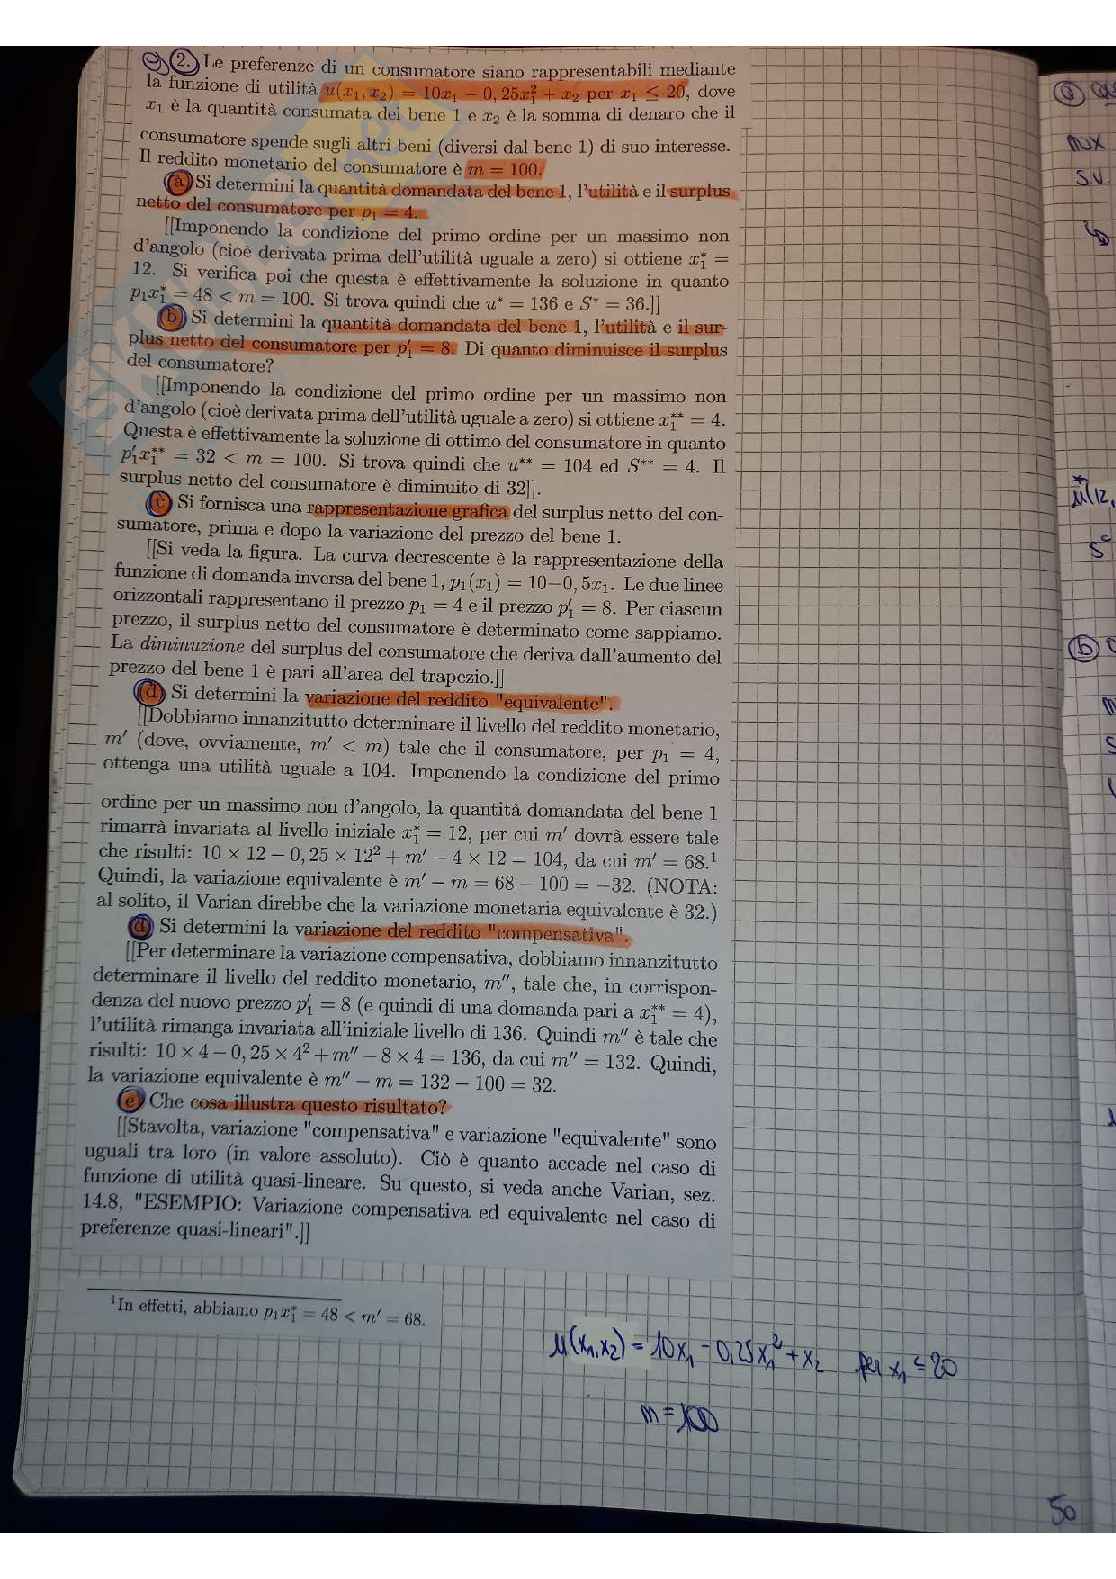 2. Le preferenze di un consumatore siano rappresentabili mediante
la funzione di utilità u(x₁, x₂) = 10x₁ − 0, 25x₁² + x₂ per x₁ ≤ 20, dove
x₁ è la quantità consumata del bene 1 e x₂ è la somma di denaro che il
consumatore spende sugli altri beni (diversi dal bene 1) di suo interesse.
Il reddito monetario del consumatore è m = 100.
(a) Si determini la quantità domandata del bene 1, l'utilità e il surplus
netto del consumatore per p₁ = 4.
[[Imponendo la condizione del primo ordine per un massimo non
d'angolo (cioè derivata prima dell'utilità uguale a zero) si ottiene x₁* =
12. Si verifica poi che questa è effettivamente la soluzione in quanto
p₁x₁* = 48 < m = 100. Si trova quindi che u* = 136 e S* = 36.]]
(b) Si determini la quantità domandata del bene 1, l'utilità e il sur-
plus netto del consumatore per p₁′ = 8. Di quanto diminuisce il surplus
del consumatore?
[[Imponendo la condizione del primo ordine per un massimo non
d'angolo (cioè derivata prima dell'utilità uguale a zero) si ottiene x₁** = 4.
Questa è effettivamente la soluzione di ottimo del consumatore in quanto
p₁′x₁** = 32 < m = 100. Si trova quindi che u** = 104 ed S** = 4. Il
surplus netto del consumatore è diminuito di 32]].
(c) Si fornisca una rappresentazione grafica del surplus netto del con-
sumatore, prima e dopo la variazione del prezzo del bene 1.
[[Si veda la figura. La curva decrescente è la rappresentazione della
funzione di domanda inversa del bene 1, p₁(x₁) = 10−0, 5x₁. Le due linee
orizzontali rappresentano il prezzo p₁ = 4 e il prezzo p₁′ = 8. Per ciascun
prezzo, il surplus netto del consumatore è determinato come sappiamo.
La diminuzione del surplus del consumatore che deriva dall'aumento del
prezzo del bene 1 è pari all'area del trapezio.]]
(d) Si determini la variazione del reddito "equivalente".
[[Dobbiamo innanzitutto determinare il livello del reddito monetario,
m′ (dove, ovviamente, m′ < m) tale che il consumatore, per p₁ = 4,
ottenga una utilità uguale a 104. Imponendo la condizione del primo
ordine per un massimo non d'angolo, la quantità domandata del bene 1
rimarrà invariata al livello iniziale x₁* = 12, per cui m′ dovrà essere tale
che risulti: 10 × 12 − 0, 25 × 12² + m′ − 4 × 12 = 104, da cui m′ = 68.¹
Quindi, la variazione equivalente è m′ − m = 68 − 100 = −32. (NOTA:
al solito, il Varian direbbe che la variazione monetaria equivalente è 32.)
(d) Si determini la variazione del reddito "compensativa".
[[Per determinare la variazione compensativa, dobbiamo innanzitutto
determinare il livello del reddito monetario, m″, tale che, in corrispon-
denza del nuovo prezzo p₁′ = 8 (e quindi di una domanda pari a x₁** = 4),
l'utilità rimanga invariata all'iniziale livello di 136. Quindi m″ è tale che
risulti: 10 × 4 − 0, 25 × 4² + m″ − 8 × 4 = 136, da cui m″ = 132. Quindi,
la variazione equivalente è m″ − m = 132 − 100 = 32.
(e) Che cosa illustra questo risultato?
[[Stavolta, variazione "compensativa" e variazione "equivalente" sono
uguali tra loro (in valore assoluto). Ciò è quanto accade nel caso di
funzione di utilità quasi-lineare. Su questo, si veda anche Varian, sez.
14.8, "ESEMPIO: Variazione compensativa ed equivalente nel caso di
preferenze quasi-lineari".]]
¹In effetti, abbiamo p₁x₁* = 48 < m′ = 68.
u(x₁,x₂) = 10x₁ − 0,25x₁² + x₂ per x₁ ≤ 20
m = 100
a
max
s.v.
u*(12,
b
50